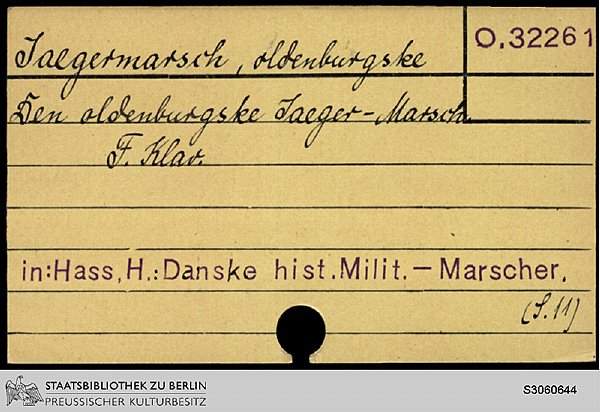 Jaegermarsch, oldenburgske
O.32261
Den oldenburgske Jaeger-Marsch.
F. Klav.
in:Hass, H.: Danske hist. Milit. — Marscher.
(S. 11)
STAATSBIBLIOTHEK ZU BERLIN
PREUSSISCHER KULTURBESITZ
S3060644